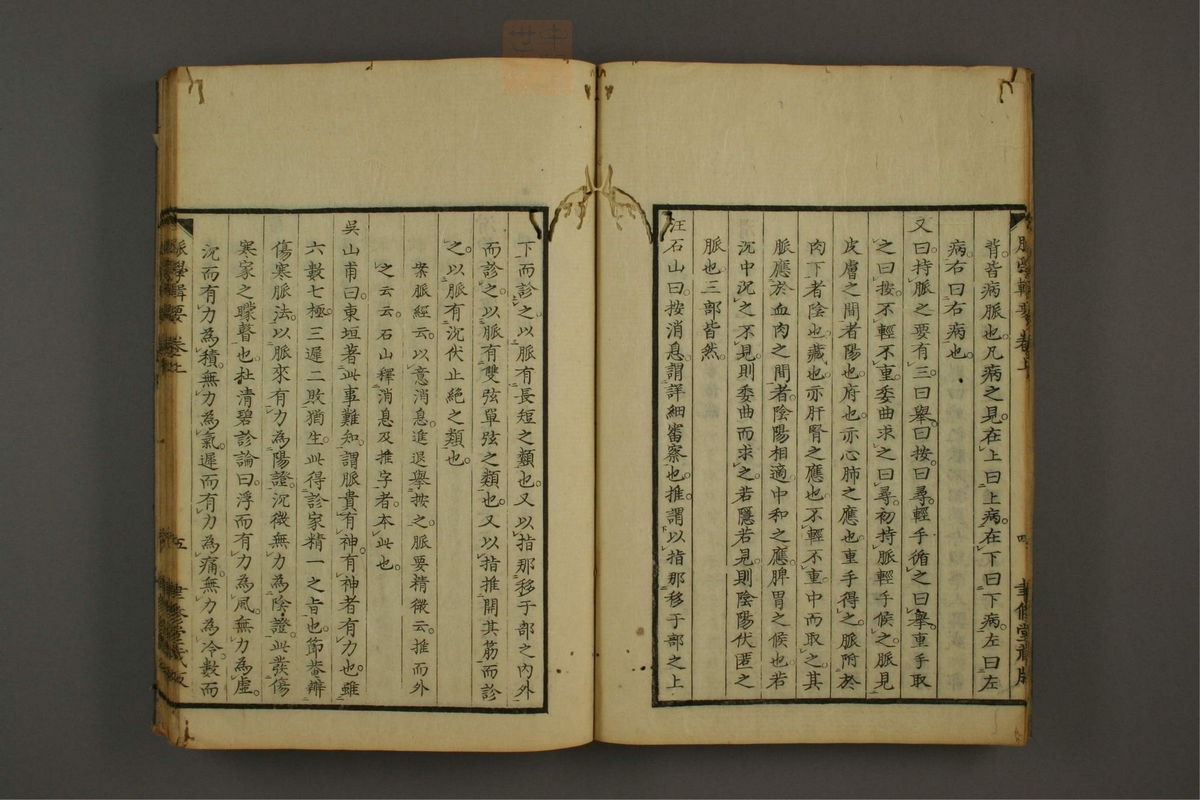 脈學輯要 卷上
聿修堂藏版
背皆病脈也凡病之見在上曰上病在下曰下病左曰左
病右曰右病也
又曰持脈之要有三曰舉曰按曰尋輕手循之曰舉重手取
之曰按不輕不重委曲求之曰尋初持脈輕手候之脈見
皮膚之間者陽也府也亦心肺之應也重手得之脈附於
肉下者陰也藏也亦肝腎之應也不輕不重中而取之其
脈應於血肉之間者陰陽相適中和之應脾胃之候也若
沉中沉之不見則委曲而求之若隱若見則陰陽伏匿之
脈也三部皆然
汪石山曰按消息謂詳細審察也推謂以指那移于部之上
下而診之以脈有長短之類也又以指那移于部之內外
而診之以脈有雙弦單弦之類也又以指推開其筋而診
之以脈有沉伏止絕之類也
案脈經云以意消息進退舉按之脈要精微云推而外
之云云石山釋消息及推字者本此也
吳山甫曰東垣著此事難知謂脈貴有神有神者有力也雖
六數七極三遲二敗猶生此得診家精一之旨也節菴辨
傷寒脈法以脈來有力為陽證沉微無力為陰證此發傷
寒家之矇瞽也杜清碧診論曰浮而有力為風無力為虛
沉而有力為積無力為氣遲而有力為痛無力為冷數而
脈學輯要 卷上
五
聿修堂藏版